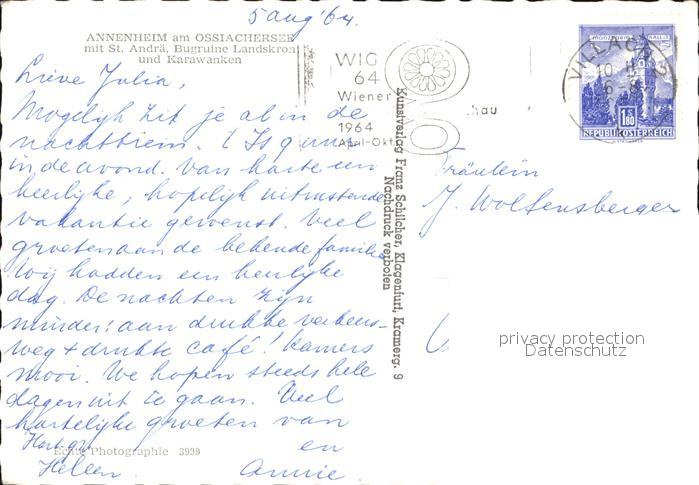 5 aug '64.
ANNENHEIM am OSSIACHERSEE
mit St. Andrä, Bugruine Landskron
und Karawanken
Lieve Julia,
Mogelijk zit je al in de
nachttrein. 't Is 9 uur
in de avond. Van harte een
heerlijke, hopelijk uitrustende
vakantie gewenst. Veel
groeten aan de bekende familie
Wij hadden een heerlijke
dag. De nachten zijn
minder: aan drukke verkeers-
weg + drukke café! Kamers
mooi. We hopen steeds hele
dagen uit te gaan. Veel
hartelijke groeten van
Hart. gr.
en
Heleen.
Annie.
Echte Photographie 3939
Kunstverlag Franz Schilcher, Klagenfurt, Kramerg. 9
Nachdruck verboten
WIG
64
Wiener
1964
April-Okt
hau
VILLACH 2
REPUBLIK ÖSTERREICH
1.80
Fräulein
J. Wolfensberger
privacy protection
Datenschutz